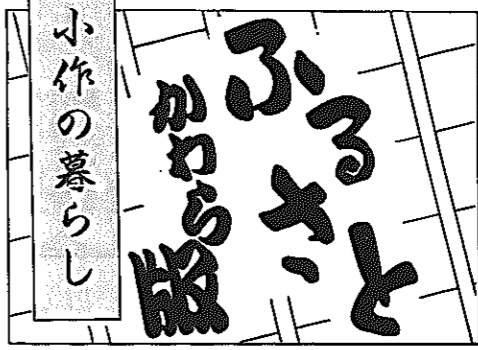 ふるさと
かわら版
小作の暮らし